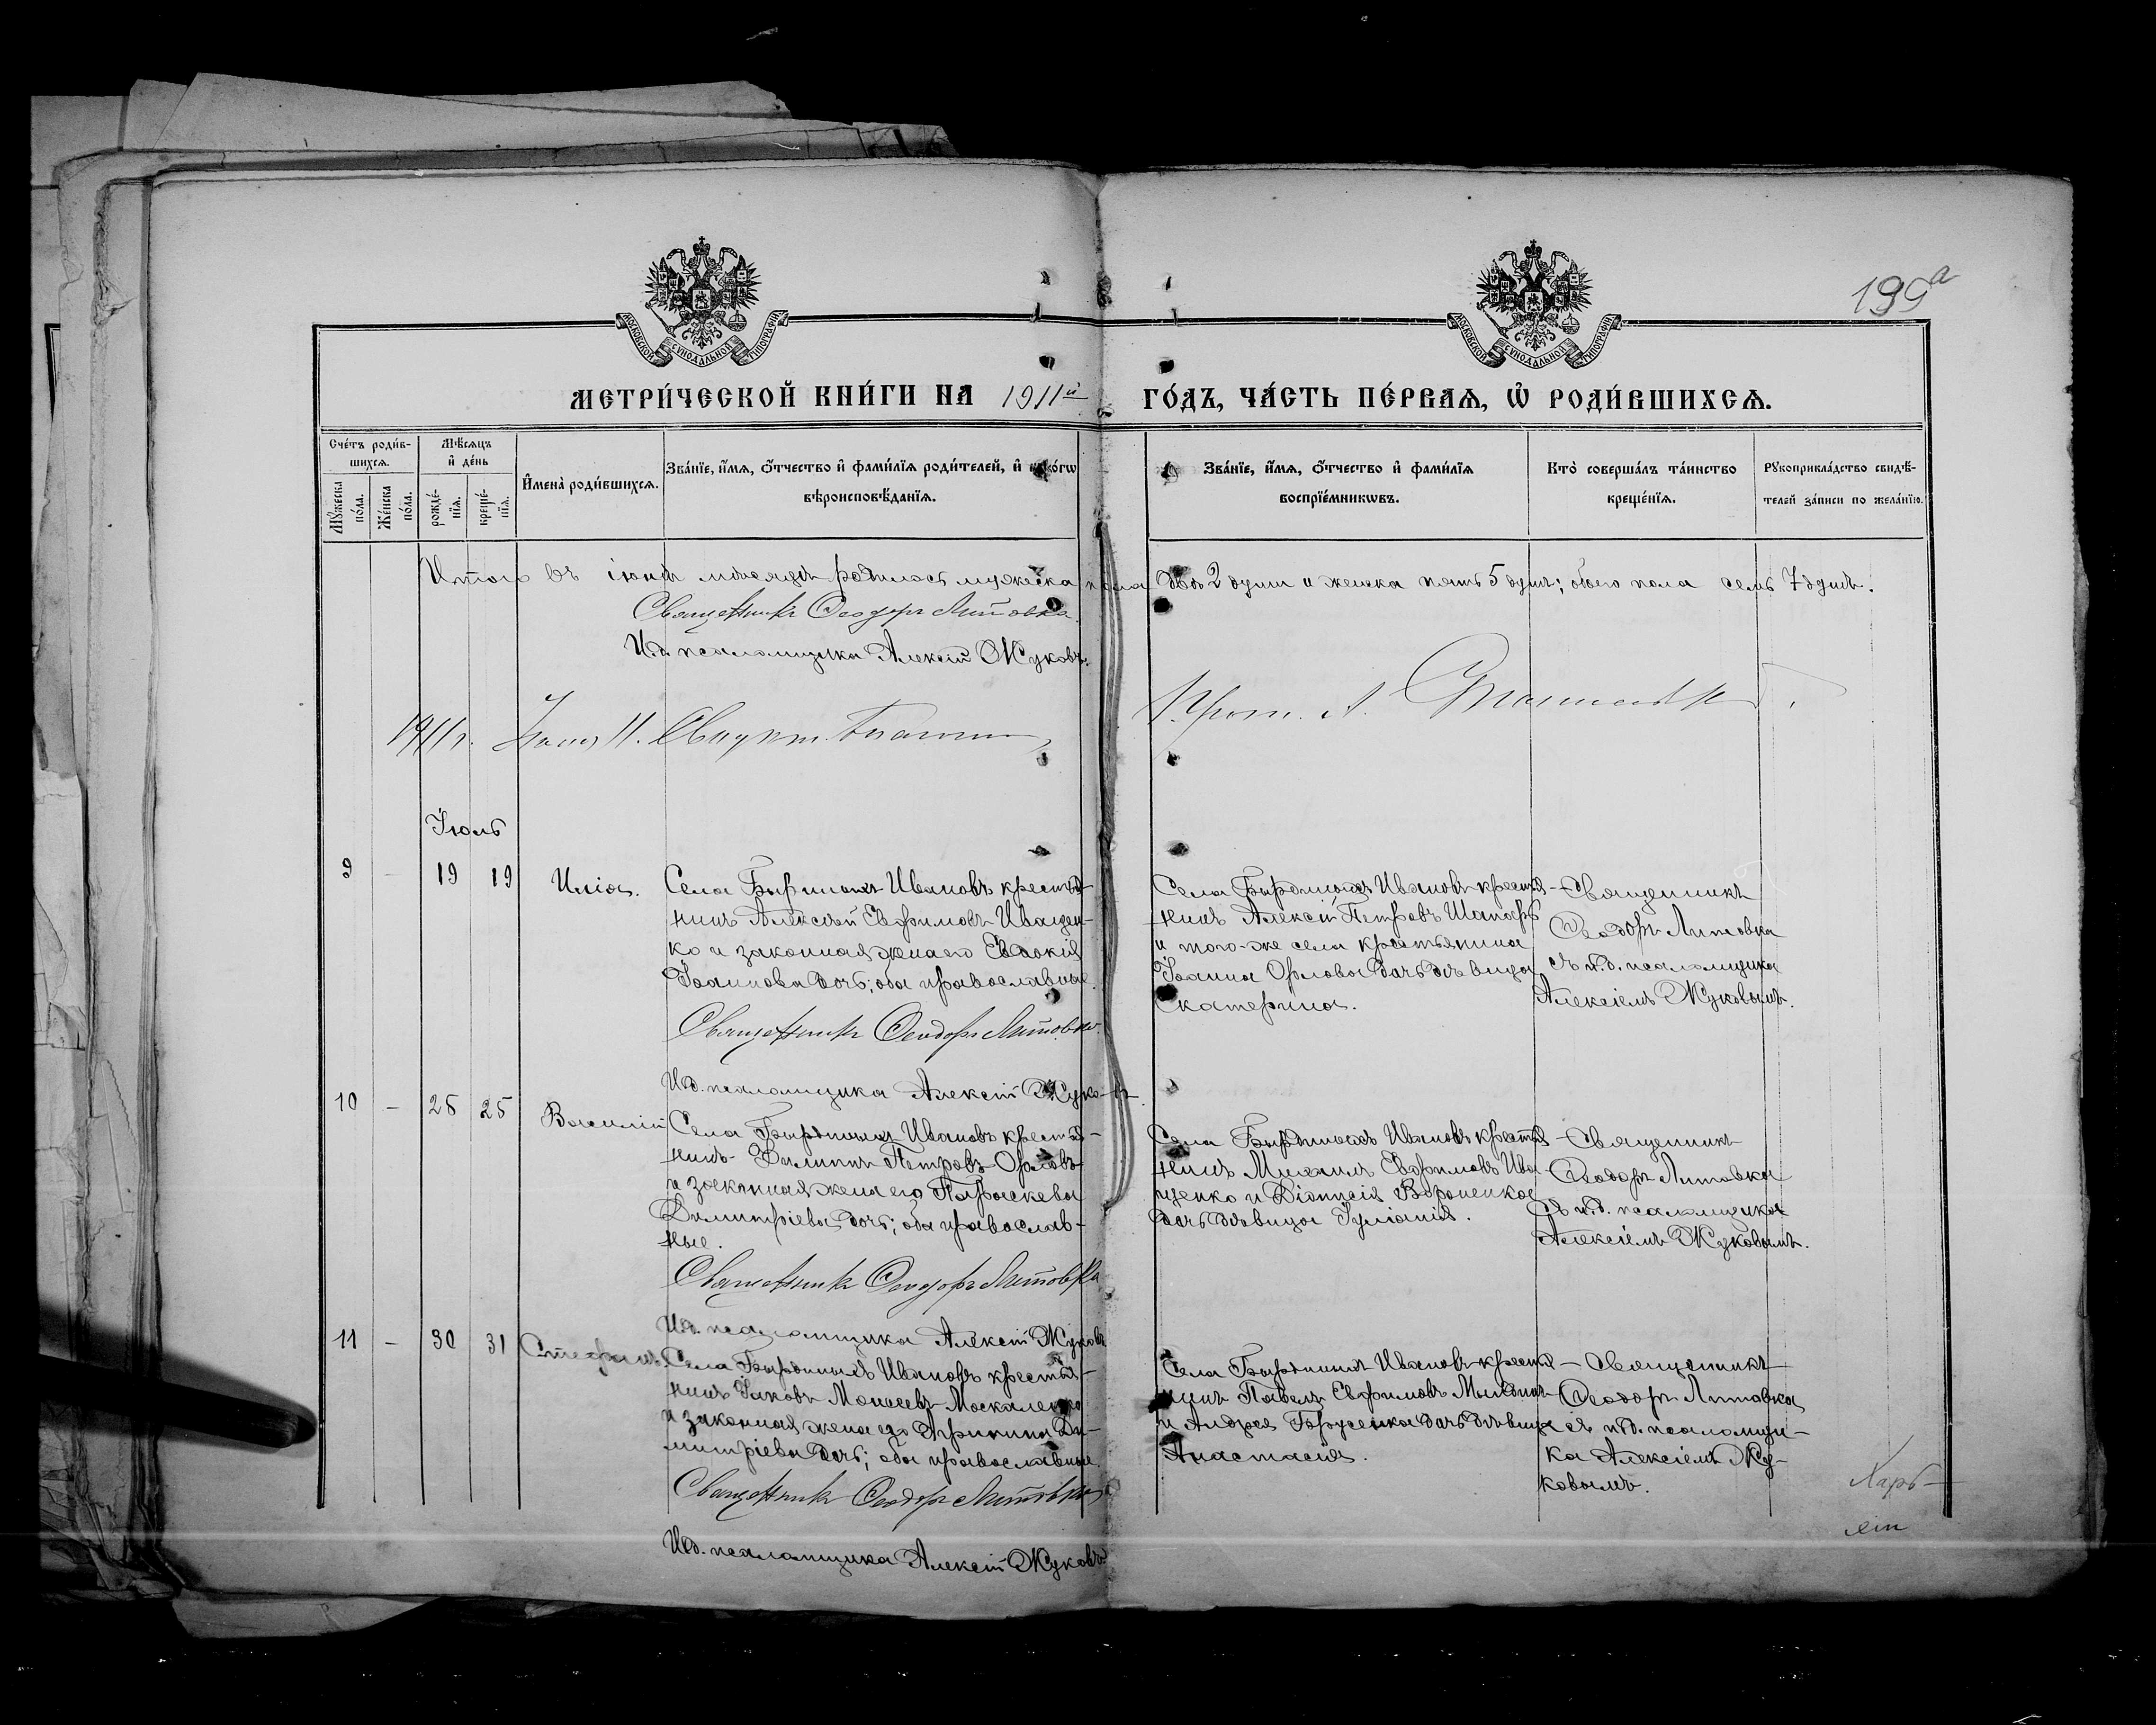 199а
МОСКОВСКОЙ СѴНОДАЛЬНОЙ ТИПОГРАФІИ
МОСКОВСКОЙ СѴНОДАЛЬНОЙ ТИПОГРАФІИ
МЕТРИ́ЧЕСКОЙ КНИ́ГИ НА 1911й ГО́ДЪ, ЧА́СТЬ ПЕ́РВАЯ, Ѡ҆ РОДИ́ВШИХСЯ.
Сче́тъ роди́вшихся.
Мꙋ́жеска по́ла.
Же́нска по́ла.
Мѣ́сяцъ и҆ де́нь
рожде́нїя.
креще́нїя.
И҆мена̀ роди́вшихся.
Зва́нїе, и҆́мя, ѻ҆́тчество и҆ фами́лїя роди́телей, и҆ како́гѡ
вѣроисповѣ́данїя.
Зва́нїе, и҆́мя, ѻ҆́тчество и҆ фами́лїя
воспрїе́мникѡвъ.
Кто̀ соверша́лъ та́инство
креще́нїя.
Рꙋкоприкла́дство свидѣ́-
телей за́писи по жела́нїю.
Итого въ іюнѣ мѣсяцѣ родилось мужеска пола двѣ 2 души и женска пять 5 душъ; обоего пола семь 7 душъ.
Священникъ Ѳеодоръ Литовка.
И.д. псаломщика Алексій Жуковъ.
1911 г.
Прот. А.
Іюль
9 - 19 19 Илія.
Села Ивановъ крестья-
нинъ Алексѣй Евфимовъ Иващен-
ко и законная жена его Евдокія
Іоаннова дочь; оба православные.
Священникъ Ѳеодоръ Литовка.
И.д. псаломщика Алексій Жуковъ.
Села Ивановъ крестья-
нинъ Алексій Петровъ
и того-же села крестьянина
Іоанна Орлова дочь дѣвица
Екатерина.
Священникъ
Ѳеодоръ Литовка
съ и.д. псаломщика
Алексіемъ Жуковымъ.
10 - 25 25 Василій
Села Ивановъ крестья-
нинъ Филиппъ Петровъ Орловъ
и законная жена его Параскева
Димитріева дочь; оба православ-
ные.
Священникъ Ѳеодоръ Литовка
И.д. псаломщика Алексій Жуковъ
Села Ивановъ крестья-
нинъ Михаилъ Евфимовъ Ива-
щенко и Діонисія
дочь дѣвица Іуліанія.
Священникъ
Ѳеодоръ Литовка
съ и.д. псаломщика
Алексіемъ Жуковымъ.
11 - 30 31 Стефанъ
Села Ивановъ крестья-
нинъ Іаковъ Моисеевъ Москаленко
и законная жена его Ди-
митріева дочь; оба православные.
Священникъ Ѳеодоръ Литовка
И.д. псаломщика Алексій Жуковъ
Села Ивановъ крестья-
нинъ Павелъ Евфимовъ
и Андрея дочь дѣвица
Анастасія.
Священникъ
Ѳеодоръ Литовка
съ и.д. псаломщи-
ка Алексіемъ Жу-
ковымъ.